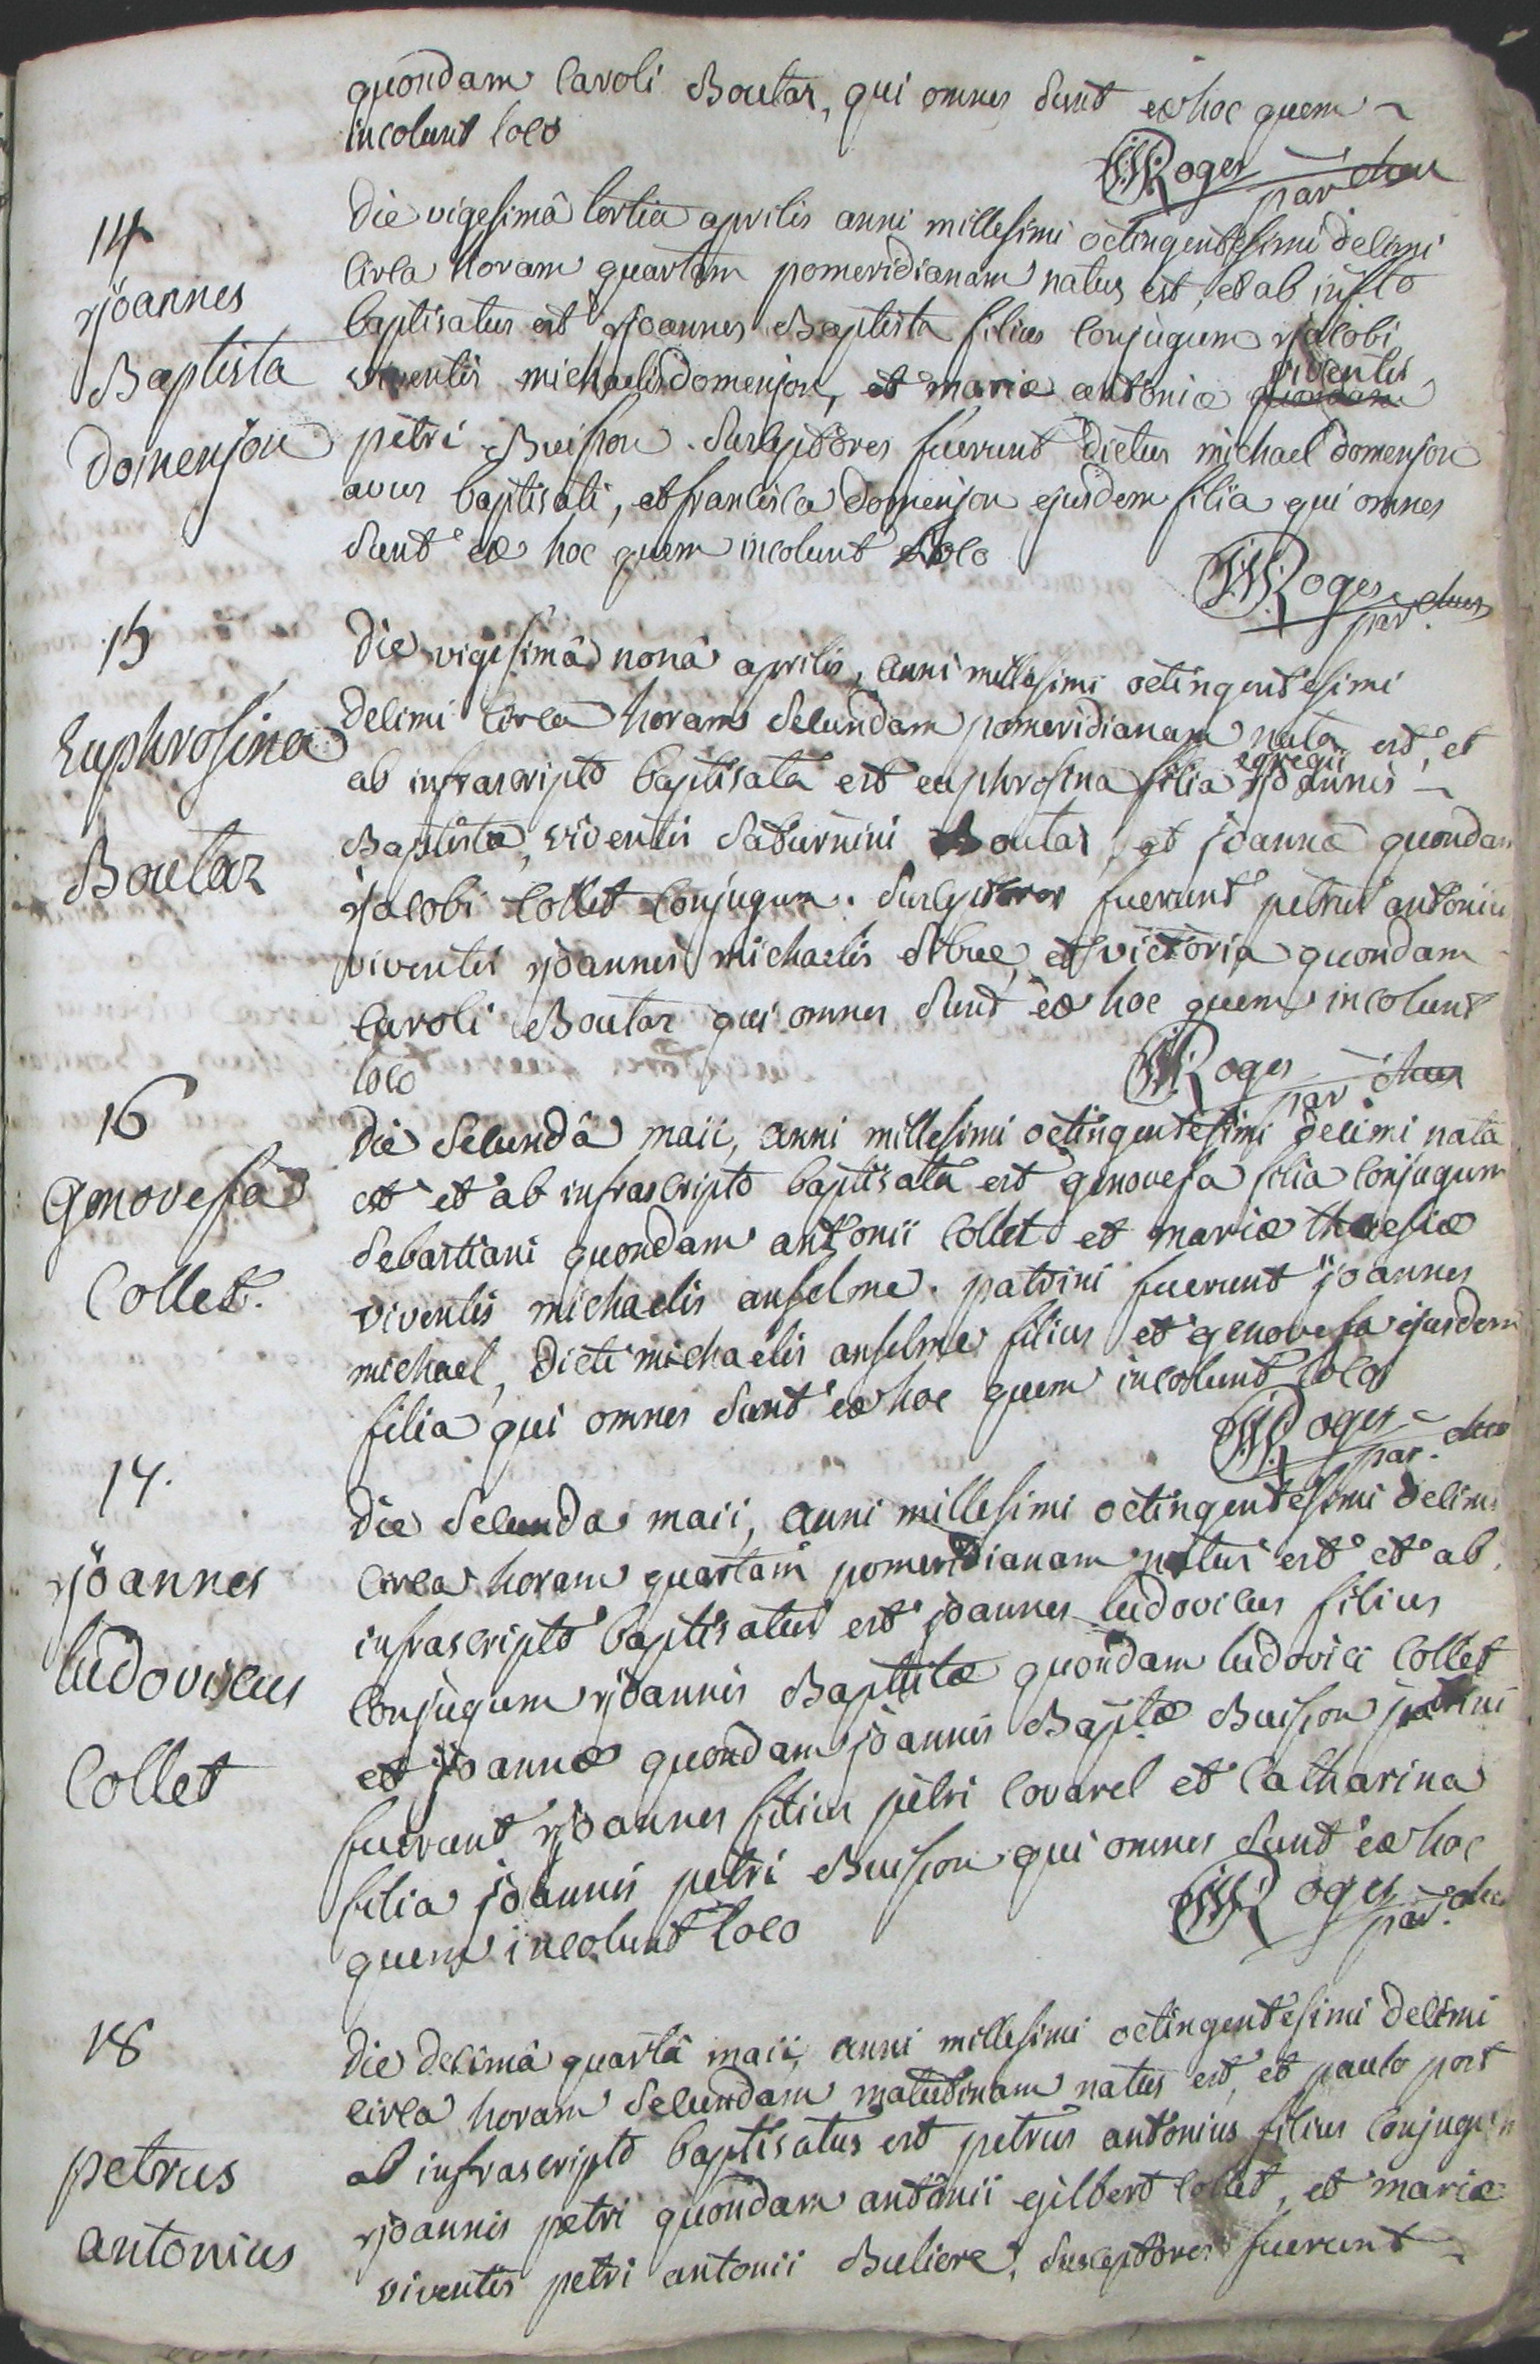 quondam Caroli Boutaz, qui omnes sunt ex hoc quem
incolunt loco
Roger par
14
Joannes
Baptista
Domenjon
Die vigesimâ tertia aprilis anni millesimi octingentesimi decimi
circa horam quartam pomeridianam natus est, et ab infto
baptisatus est Joannes Baptista filius conjugum Jacobi
viventis michaelis domenjon, et mariæ antoniæ quondam viventis
petri Buisson. Susceptores fuerunt dictus michael domenjon
avus baptisati, et francisca domenjon ejusdem filia qui omnes
sunt ex hoc quem incolunt loco
Roger par
15
Euphrosina
Boutaz
Die vigesimâ nonâ aprilis, anni millesimi octingentesimi
decimi circa horam secundam pomeridianam nata est, et
ab infrascripto baptisata est euphrosina filia egregii Joannis
Baptistæ, viventis Saturnini Boutaz, et joannæ quondam
Jacobi Collet conjugum. Susceptores fuerunt petrus antonius
viventis Joannis michaelis et victoria quondam
Caroli Boutaz qui omnes sunt ex hoc quem incolunt
loco
Roger par
16
Genovefa
Collet.
Die secundâ maii, anni millesimi octingentesimi decimi nata
est et ab infrascripto baptisata est genovefa filia conjugum
Sebastiani quondam antonii Collet et mariæ theresiæ
viventis michaelis anselme. patrini fuerunt joannes
michael, dicti michaelis anselme filius et genovefa ejusdem
filia qui omnes sunt ex hoc quem incolunt loco
Roger par.
17.
Joannes
ludovicus
Collet
Die secunda maii, anni millesimi octingentesimi decimi
circa horam quartam pomeridianam natus est et ab
infrascripto baptisatus est joannes ludovicus filius
conjugum Joannis Baptistæ quondam ludovici Collet
et joannæ quondam joannis Baptæ Buisson patrini
fuerunt Joannes filius petri Covarel et Catharina
filia joannis petri Buisson qui omnes sunt ex hoc
quem incolunt loco
Roger par.
18
petrus
antonius
Die decimâ quartâ maii, anni millesimi octingentesimi decimi
circa horam secundam matutinam natus est, et paulo post
ab infrascripto baptisatus est petrus antonius filius conjugum
Joannis petri quondam antonii gilbert Collet, et mariæ
viventis petri antonii Buliere. Susceptores fuerunt